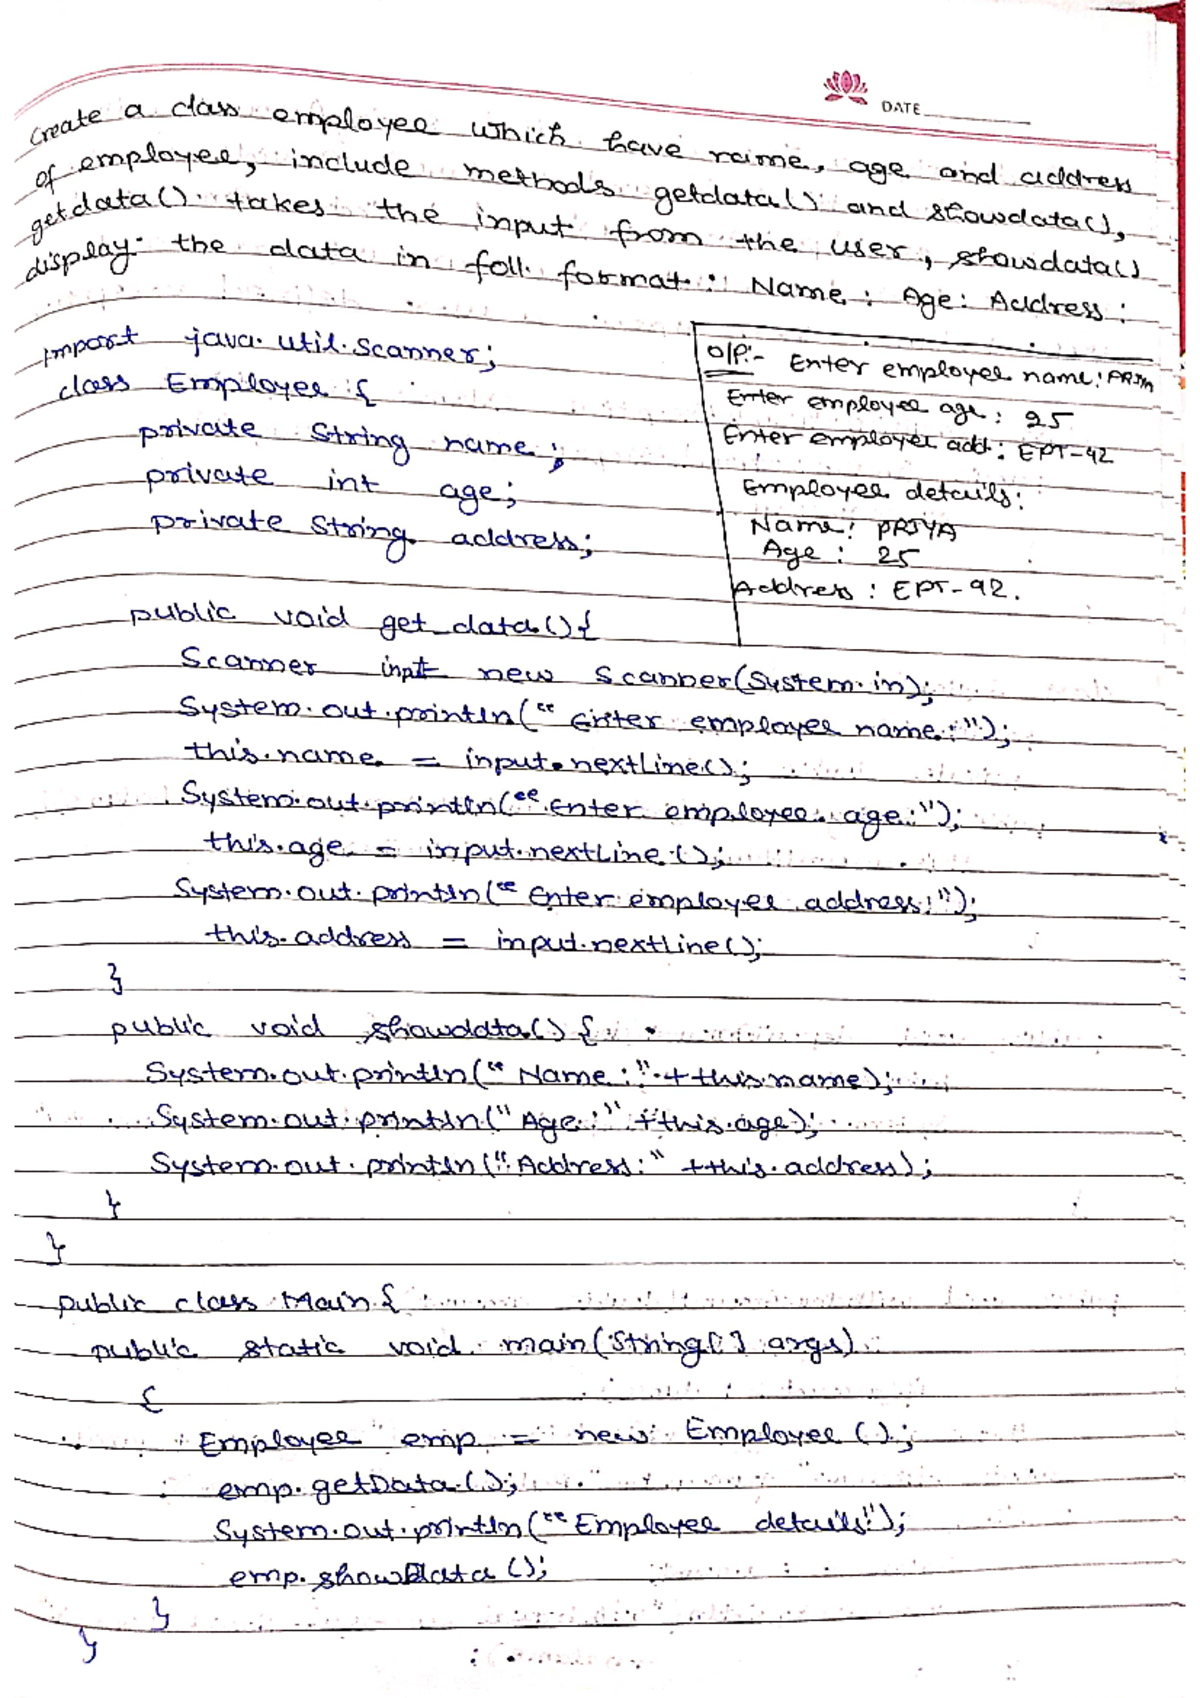 DATE
Create a class employee which have name, age and address
of employee, include methods getdata() and showdata(),
getdata() takes the input from the user, showdata()
display the data in foll. format: Name: Age: Address:
import java.util.scanner;
class Employee {
private String name;
private int age;
private String address;
O/P:- Enter employee name: PRIYA
Enter employee age: 25
Enter employee add: EPT-92
Employee details:
Name: PRIYA
Age: 25
Address: EPT-92.
public void get_data(){
Scanner input new Scanner(System.in);
System.out.println("Enter employee name:");
this.name = input.nextLine();
System.out.println("Enter employee age:");
this.age = input.nextLine();
System.out.println("Enter employee address:");
this.address = input.nextLine();
}
public void showdata() {
System.out.println("Name:" + this.name);
System.out.println("Age:" + this.age);
System.out.println("Address:" + this.address);
}
}
public class Main {
public static void main(String[] args)
{
Employee emp = new Employee();
emp.getData();
System.out.println("Employee details:");
emp.showData();
}
}